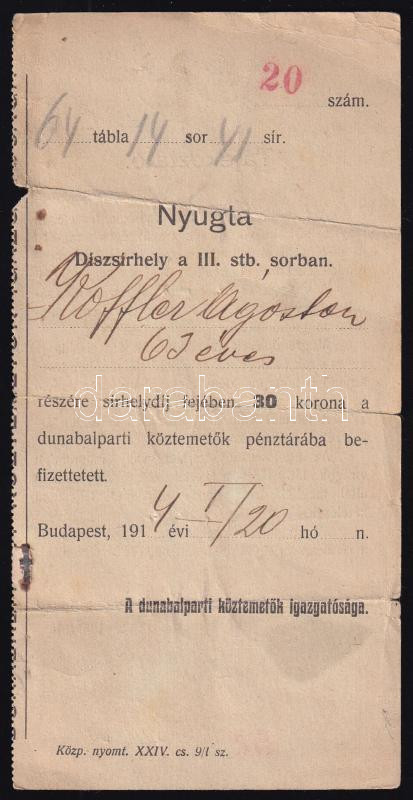 20 szám.
64 tábla 14 sor 41 sír.
Nyugta
Díszsírhely a III. stb. sorban.
Koffler Ágoston
63 éves
részére sírhelydíj fejében 30 korona a
darabanth
dunabalparti köztemetők pénztárába be-
fizettetett.
Budapest, 1914 évi I/20 hó n.
A dunabalparti köztemetők igazgatósága.
Közp. nyomt. XXIV. cs. 9/l sz.